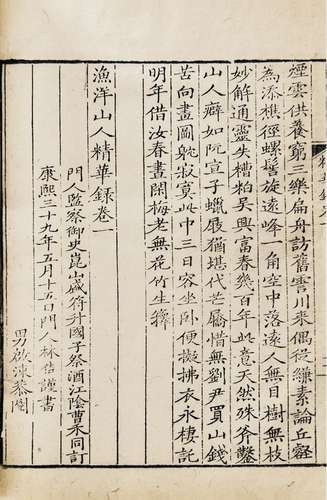 煙雲供養窮三樂扁舟訪舊雲川來偶從縑素論丘壑
為添樵徑螺髻旋遠峰一角空中落遠人無目樹無枝
妙解通靈失糟粕吳興富春幾百年此意天然殊斧鑿
山人癖如阮宣子蠟屐猶堪代芒屩惜無劉尹買山錢
苦向畫圖躭寂寞此中三日容坐卧便擬拂衣永棲託
明年借汝春晝閑梅老無花竹生籜
漁洋山人精華録卷一
門人監察御史崑山盛符升國子祭酒江陰曹禾同訂
康熙三十九年五月十五日門人林佶謹書
男啟涑恭閱